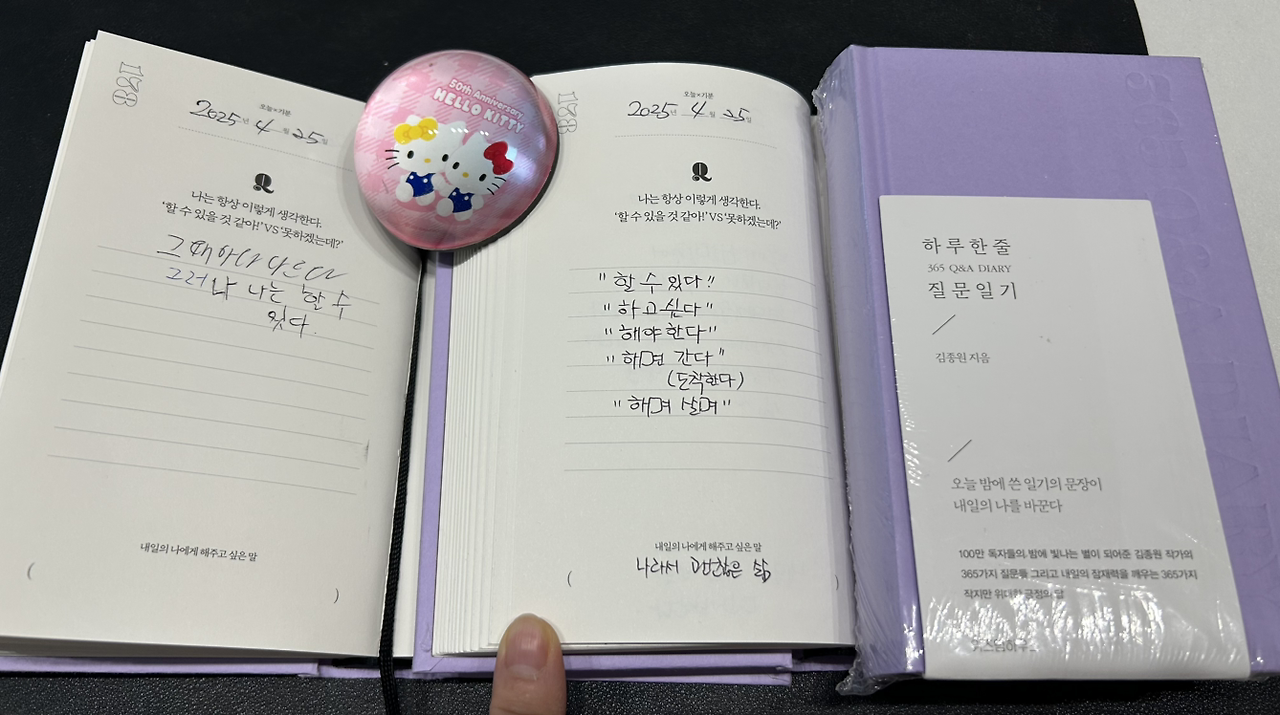 138
오늘×기분
2025년 4월 25일
Q
나는 항상 이렇게 생각한다.
'할 수 있을 것 같아!' VS '못하겠는데?'
그때마다 다르다
그러나 나는 할 수
있다.
내일의 나에게 해주고 싶은 말
( )
50th Anniversary
HELLO KITTY
138
오늘×기분
2025년 4월 25일
Q
나는 항상 이렇게 생각한다.
'할 수 있을 것 같아!' VS '못하겠는데?'
"할 수 있다!!
"하고싶다"
"해야한다"
"하면 간다"
(도착한다)
"하며 살며"
내일의 나에게 해주고 싶은 말
( 나라서 괜찮은 삶 )
하루 한 줄
365 Q&A DIARY
질문 일기
김종원 지음
오늘 밤에 쓴 일기의 문장이
내일의 나를 바꾼다
100만 독자들의 밤에 빛나는 별이 되어준 김종원 작가의
365가지 질문들 그리고 내일의 잠재력을 깨우는 365가지
작지만 위대한 긍정의 답